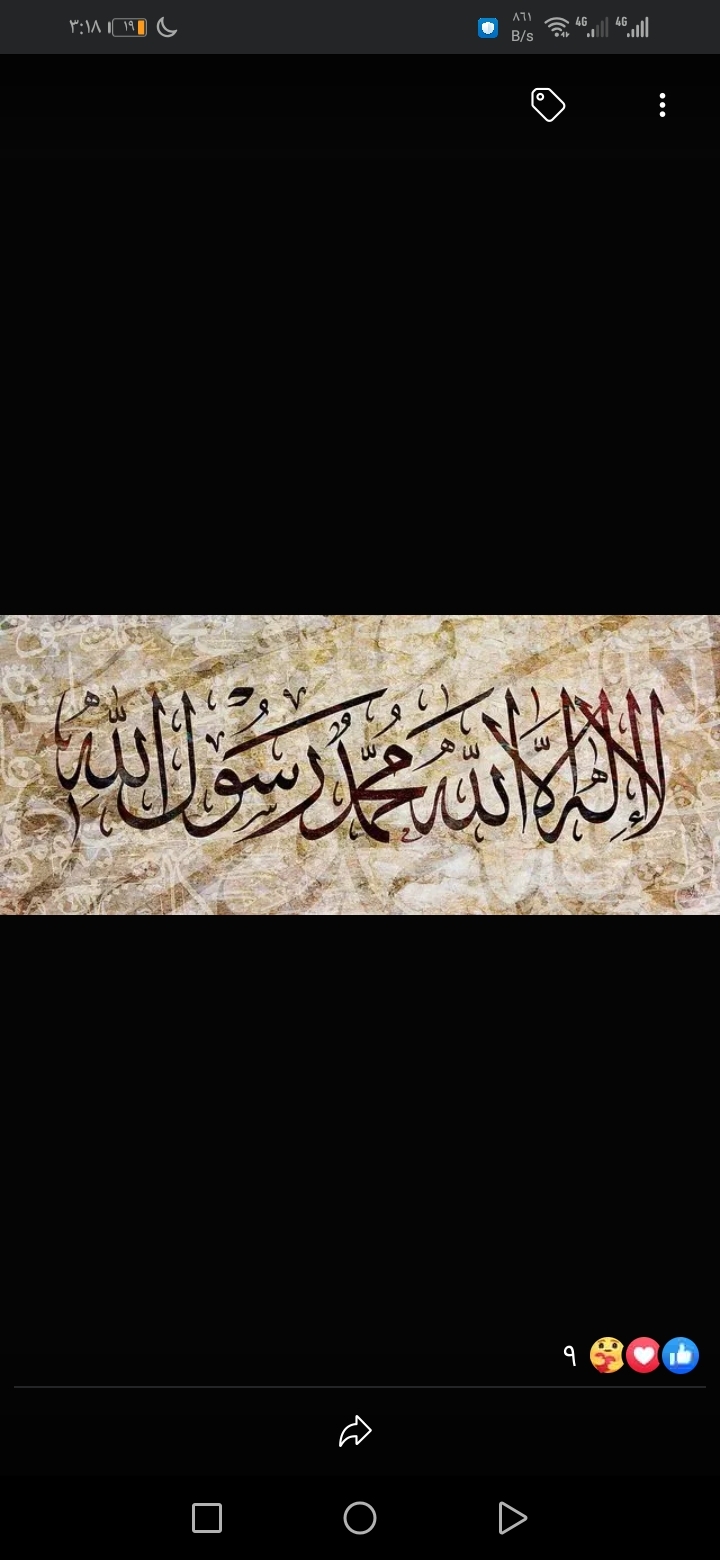 ٣:١٨ ١٩ ٨٦١ B/s 4G 4G
لا إله إلا الله محمد رسول الله
٩